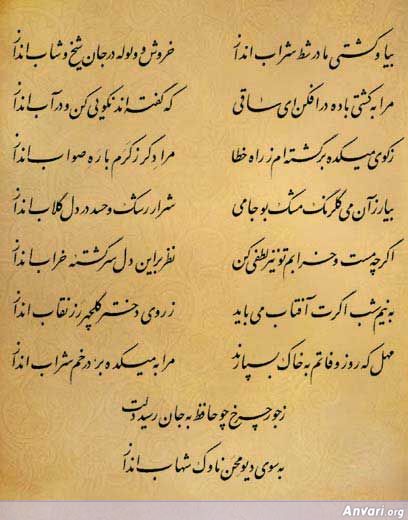 بیا و کشتی ما در شط شراب انداز خروش و ولوله در جان شیخ و شاب انداز
مرا به کشتی باده در افکن ای ساقی که گفته اند نکویی کن و در آب انداز
ز کوی میکده برگشته ام ز راه خطا مرا دگر ز کرم با ره صواب انداز
بیار زآن می گلرنگ مشک بو جامی شرار رشک و حسد در دل گلاب انداز
اگر چه مست و خرابم تو نیز لطفی کن نظر براین دل سرگشته خراب انداز
به نیم شب اگرت آفتاب می باید ز روی دختر گلچهر رز نقاب انداز
مهل که روز وفاتم به خاک بسپارند مرا به میکده بر در خم شراب انداز
ز جور چرخ چو حافظ به جان رسید دلت
به سوی دیو محن ناوک شهاب انداز
Anvari.org